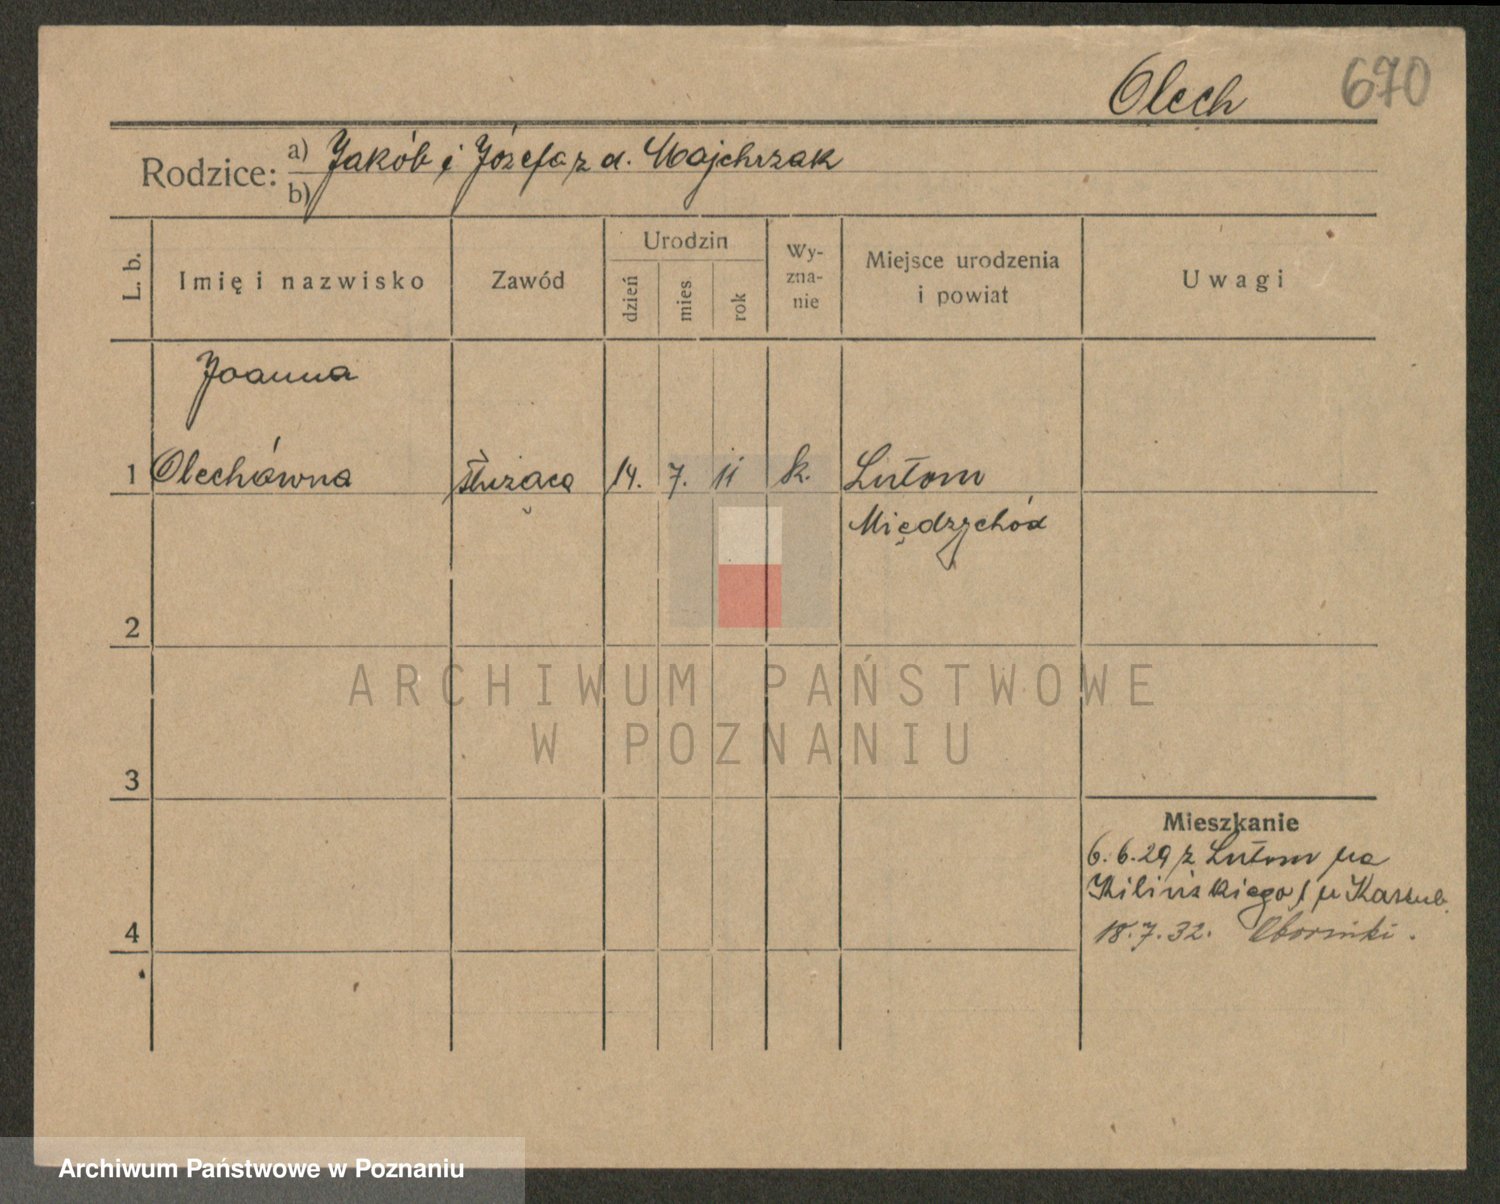 Olech 670
Rodzice: a) Jakób i Józefa z d. Majchrzak
b)
L. b.
Imię i nazwisko
Zawód
Urodzin
dzień
mies
rok
Wy-
zna-
nie
Miejsce urodzenia
i powiat
Uwagi
Joanna
1 Olechówna służąca 14. 7. 11 k. Lutom
Międzychód
2
ARCHIWUM PAŃSTWOWE
W POZNANIU
3
Mieszkanie
6.6.29 z Lutom na
Kilińskiego / u Kaszub.
4
18.7.32. Oborniki.
Archiwum Państwowe w Poznaniu